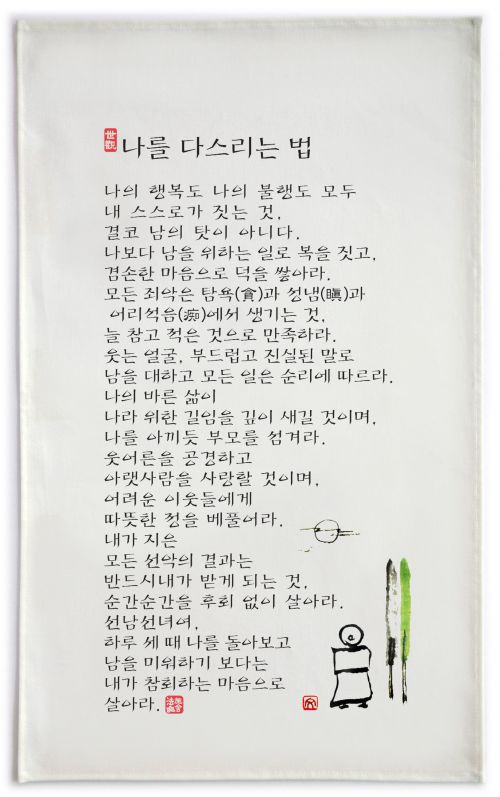 世觀 나를 다스리는 법
나의 행복도 나의 불행도 모두
내 스스로가 짓는 것,
결코 남의 탓이 아니다.
나보다 남을 위하는 일로 복을 짓고,
겸손한 마음으로 덕을 쌓아라.
모든 죄악은 탐욕(貪)과 성냄(瞋)과
어리석음(痴)에서 생기는 것,
늘 참고 적은 것으로 만족하라.
웃는 얼굴, 부드럽고 진실된 말로
남을 대하고 모든 일은 순리에 따르라.
나의 바른 삶이
나라 위한 길임을 깊이 새길 것이며,
나를 아끼듯 부모를 섬겨라.
웃어른을 공경하고
아랫사람을 사랑할 것이며,
어려운 이웃들에게
따뜻한 정을 베풀어라.
내가 지은
모든 선악의 결과는
반드시내가 받게 되는 것,
순간순간을 후회 없이 살아라.
선남선녀여,
하루 세 때 나를 돌아보고
남을 미워하기 보다는
내가 참회하는 마음으로
살아라.